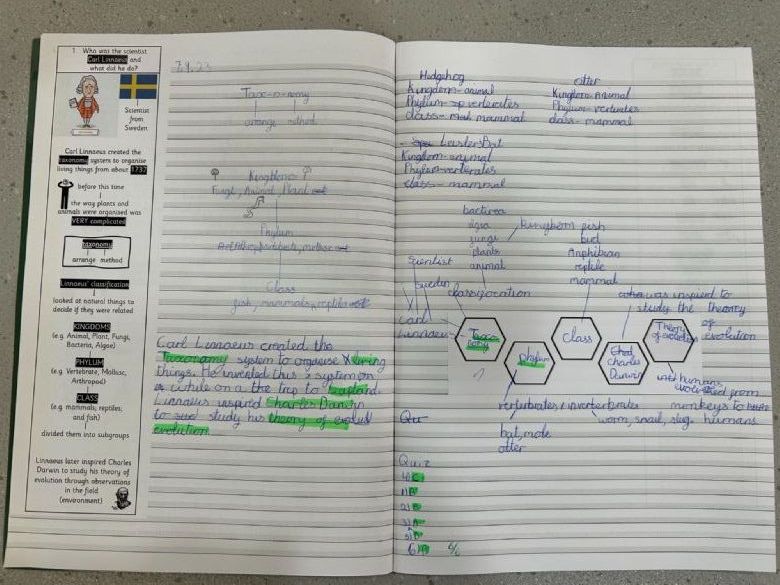 1. Who was the scientist
Carl Linnaeus and
what did he do?
Scientist
from
Sweden
Carl Linnaeus created the
taxonomy system to organise
living things from about 1737
before this time
the way plants and
animals were organised was
VERY complicated
taxonomy
arrange method
Linnaeus' classification
looked at natural things to
decide if they were related
KINGDOMS
(e.g. Animal, Plant, Fungi,
Bacteria, Algae)
PHYLUM
(e.g. Vertebrate, Mollusc,
Arthropod)
CLASS
(e.g. mammals, reptiles,
and fish)
divided them into subgroups
Linnaeus later inspired Charles
Darwin to study his theory of
evolution through observations
in the field
(environment)
7.9.23
Taxo-n-omy
arrange method
Fungi, Animal, Plant
Phylum
Class
fish, mammals, reptile
Carl Linnaeus created the
Taxonomy system to
things. He invented this system
while on a the trip to Lapland.
Linnaeus inspired Charles Darwin
to study his theory of
evolution
Kingdom- animal
Phylum- vertebrates
class- mammal
otter
Kingdom- Animal
Phylum- vertebrates
class- mammal
Kingdom- animal
Phylum- vertebrates
class- mammal
bacterea
fungi
plants
animal
kingdom
fish
bird
Amphibian
reptile
mammal
Scientist
Sweden
Carl
Linnaeus
classification
Taxo-
nomy
phylum
Class
Charles
Darwin
Theory
of evolution
was inspired to
study the theory
of
evolution
humans
from
monkeys to
humans
vertubrates / invertebrates
worm, snail, slug
bat, mole
otter
Qu
Quiz
C
1) A
2) B
3) A
5) D
6) B
6/6